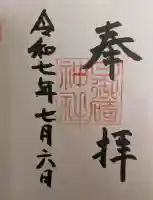 奉拝
日御碕
神社
令和七年七月六日